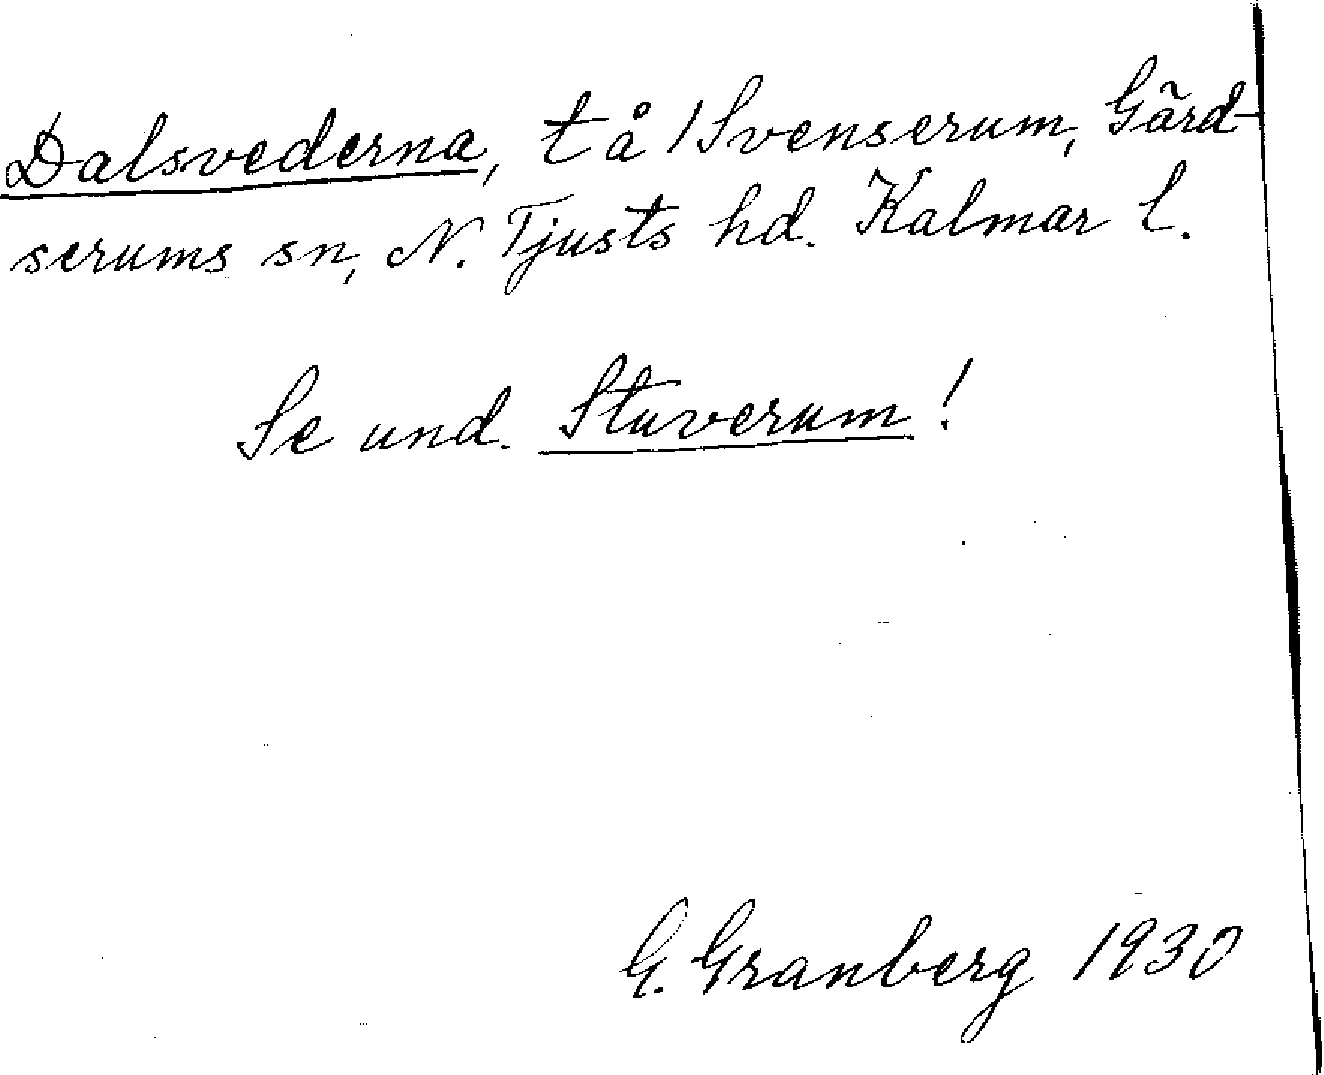 Dalsvederna, t å /Svenserum, Gärd-
serums sn, N. Tjusts hd. Kalmar l.
Se und. Stuverum!
G. Granberg 1930